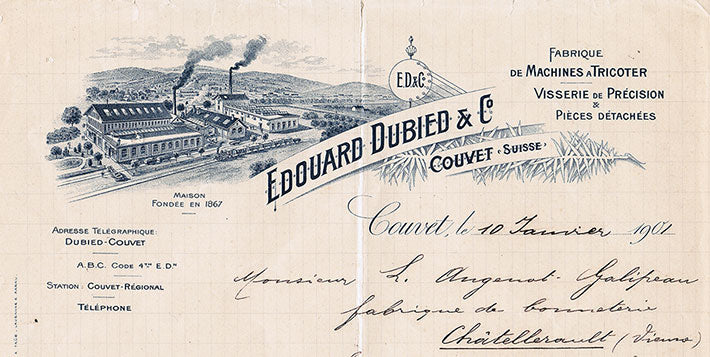 FABRIQUE
DE MACHINES A TRICOTER
VISSERIE DE PRÉCISION
&
PIÈCES DÉTACHÉES
E.D & Cº
EDOUARD DUBIED & Cº
COUVET (SUISSE)
MAISON
FONDÉE EN 1867
ADRESSE TÉLÉGRAPHIQUE:
DUBIED-COUVET
A.B.C. CODE 4TH ED.N
STATION: COUVET-RÉGIONAL
TÉLÉPHONE
Couvet, le 10 Janvier 1901
Monsieur L. Angenot-Galipeau
fabrique de bonneterie
Châtellerault (Vienne)